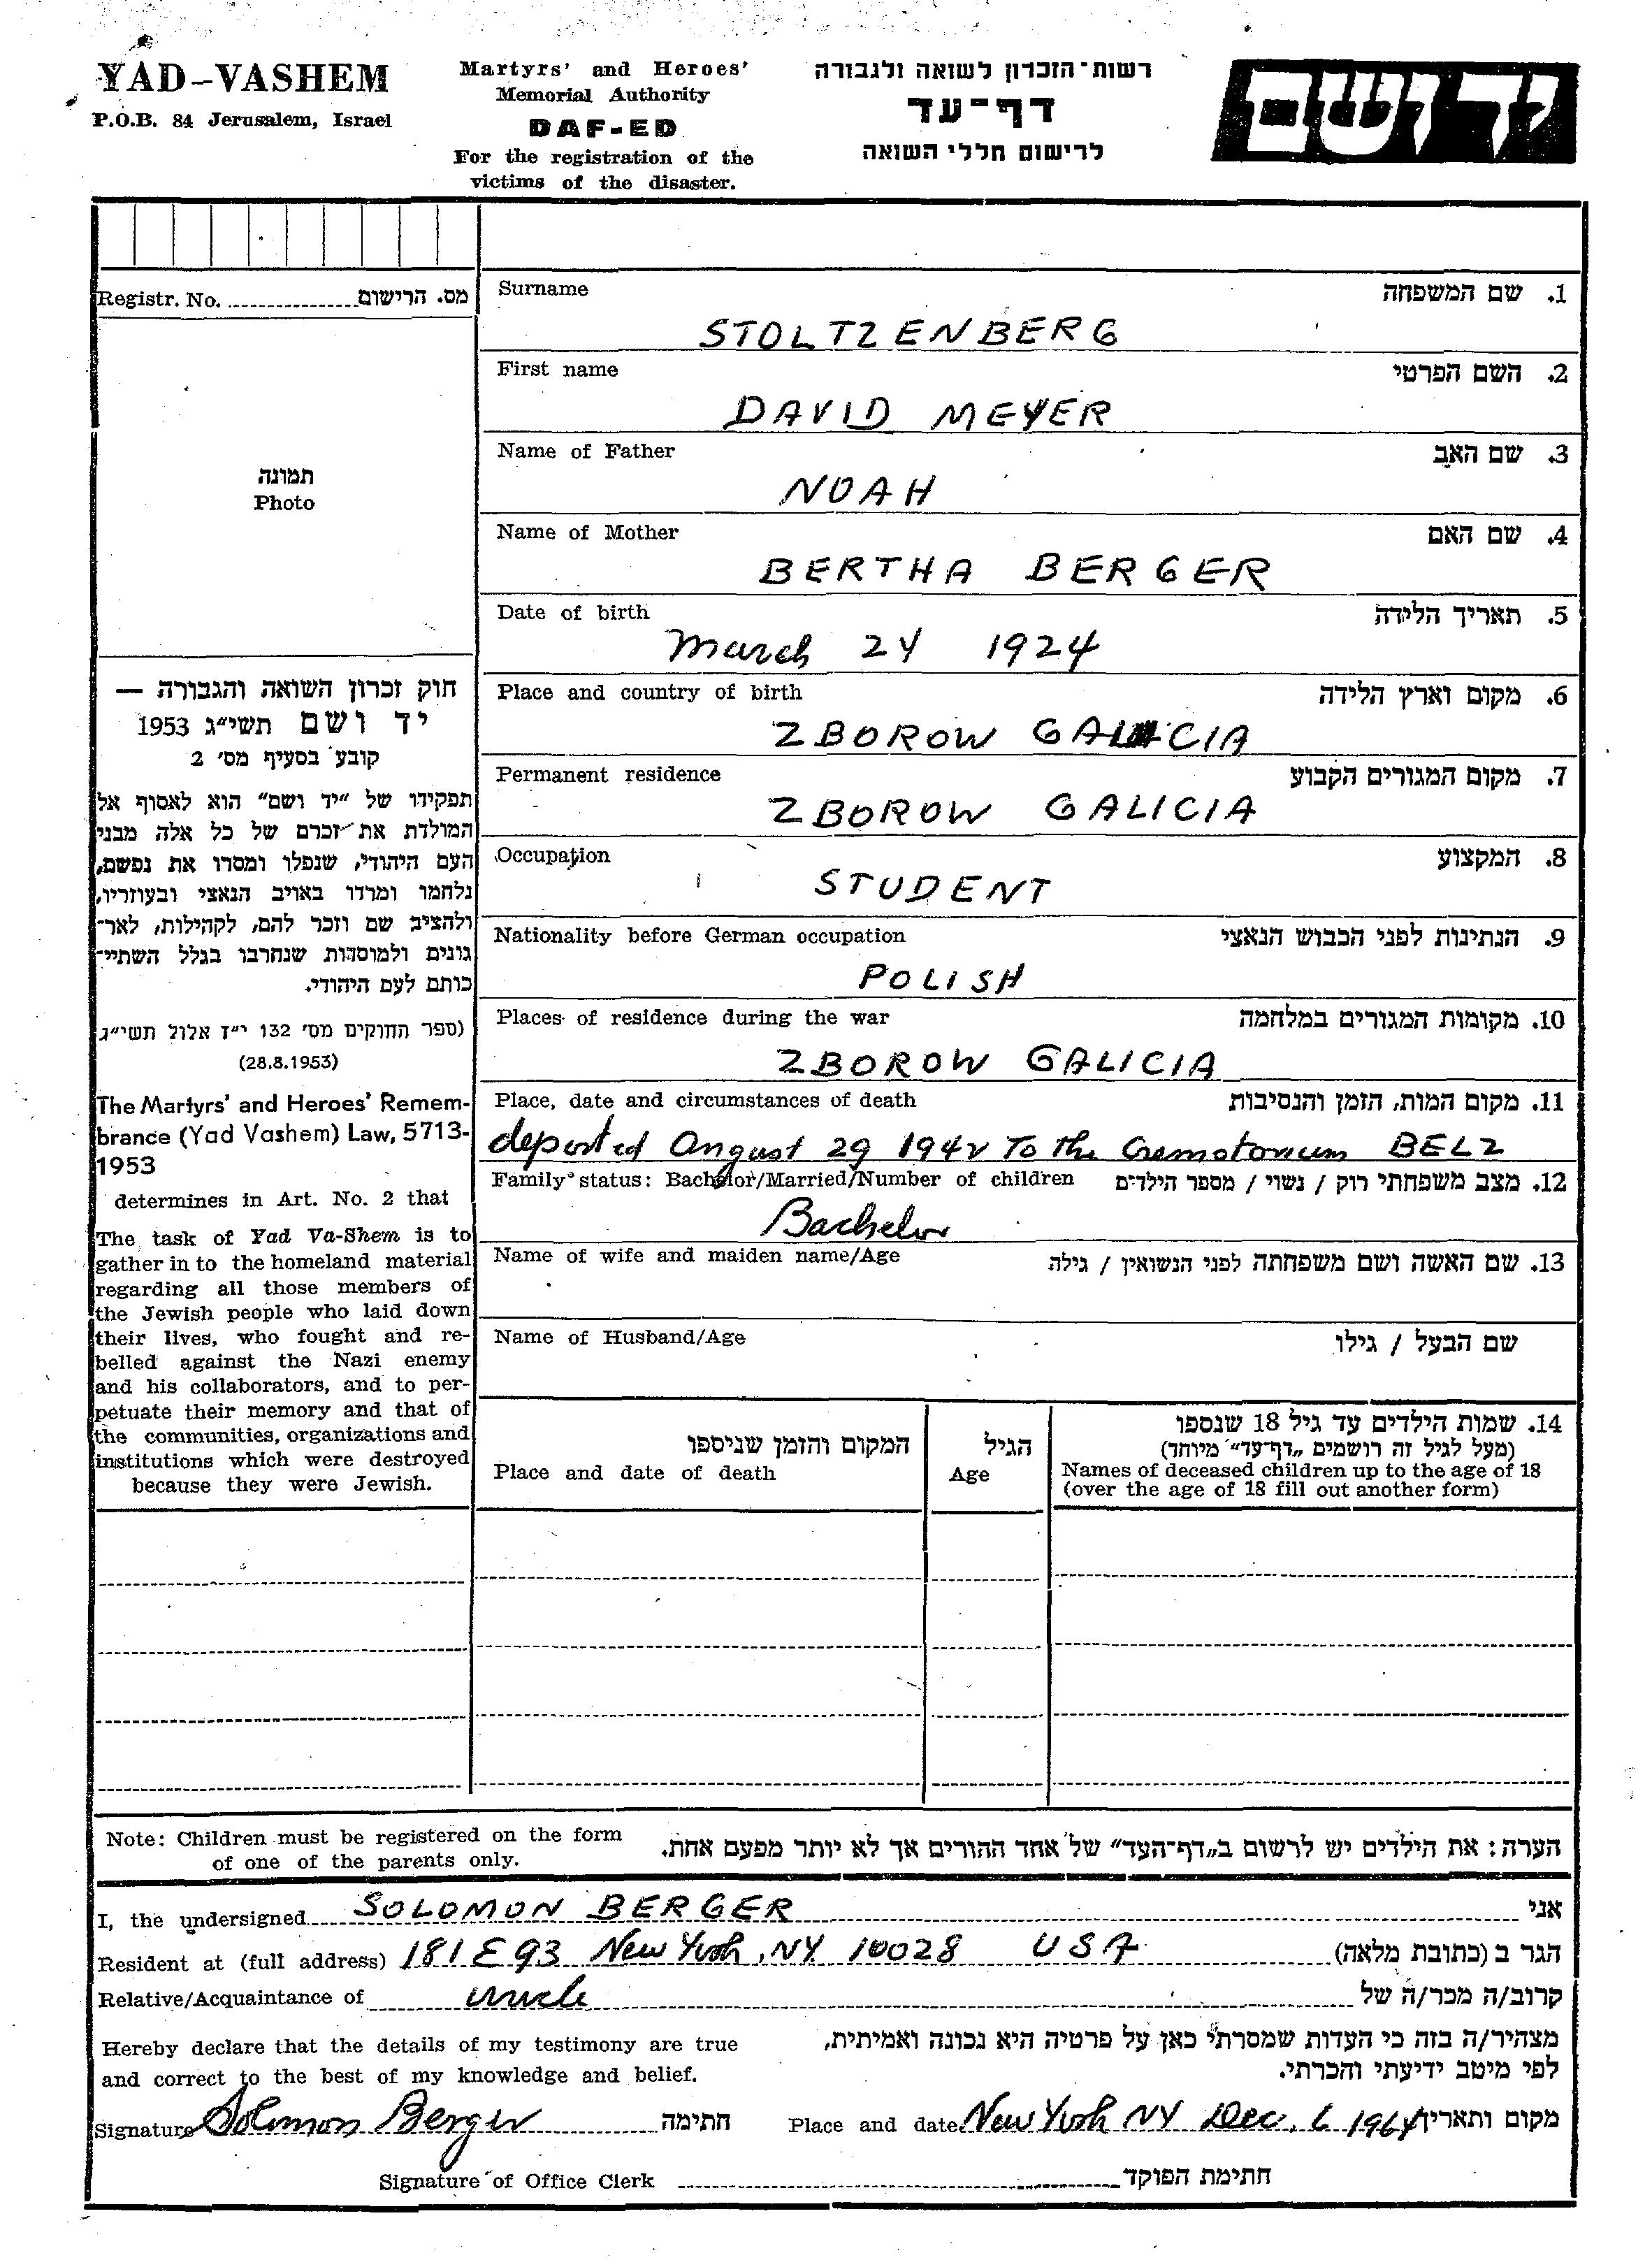 YAD-VASHEM
P.O.B. 84 Jerusalem, Israel
Martyrs' and Heroes'
Memorial Authority
DAF-ED
For the registration of the
victims of the disaster.
רשות־הזכרון לשואה ולגבורה
דף־עד
לרישום חללי השואה
יד ושם
Registr. No. מס. הרישום
תמונה
Photo
חוק זכרון השואה והגבורה —
יד ושם תשי״ג 1953
קובע בסעיף מס׳ 2
תפקידו של ״יד ושם״ הוא לאסוף אל
המולדת את זכרם של כל אלה מבני
העם היהודי, שנפלו ומסרו את נפשם,
נלחמו ומרדו באויב הנאצי ובעוזריו,
ולהציב שם וזכר להם, לקהילות, לאר־
גונים ולמוסדות שנחרבו בגלל השתיי־
כותם לעם היהודי.
(ספר החוקים מס׳ 132 י״ז אלול תשי״ג
(28.8.1953)
The Martyrs' and Heroes' Remem-
brance (Yad Vashem) Law, 5713-
1953
determines in Art. No. 2 that
The task of Yad Va-Shem is to
gather in to the homeland material
regarding all those members of
the Jewish people who laid down
their lives, who fought and re-
belled against the Nazi enemy
and his collaborators, and to per-
petuate their memory and that of
the communities, organizations and
institutions which were destroyed
because they were Jewish.
Surname 1. שם המשפחה
STOLTZENBERG
First name 2. השם הפרטי
DAVID MEYER
Name of Father 3. שם האב
NOAH
Name of Mother 4. שם האם
BERTHA BERGER
Date of birth 5. תאריך הלידה
March 24 1924
Place and country of birth 6. מקום וארץ הלידה
ZBOROW GALICIA
Permanent residence 7. מקום המגורים הקבוע
ZBOROW GALICIA
Occupation 8. המקצוע
STUDENT
Nationality before German occupation 9. הנתינות לפני הכבוש הנאצי
POLISH
Places of residence during the war 10. מקומות המגורים במלחמה
ZBOROW GALICIA
Place, date and circumstances of death 11. מקום המות, הזמן והנסיבות
deported August 29 1942 To the Crematorium BELZ
Family status: Bachelor/Married/Number of children 12. מצב משפחתי רוק / נשוי / מספר הילדים
Bachelor
Name of wife and maiden name/Age 13. שם האשה ושם משפחתה לפני הנשואין / גילה
Name of Husband/Age שם הבעל / גילו
המקום והזמן שניספו
Place and date of death
הגיל
Age
14. שמות הילדים עד גיל 18 שנספו
(מעל לגיל זה רושמים „דף־עד״ מיוחד)
Names of deceased children up to the age of 18
(over the age of 18 fill out another form)
Note: Children must be registered on the form
of one of the parents only.
הערה: את הילדים יש לרשום ב„דף־העד״ של אחד ההורים אך לא יותר מפעם אחת.
I, the undersigned SOLOMON BERGER אני
Resident at (full address) 181 E 93 New York, NY 10028 USA הגר ב (כתובת מלאה)
Relative/Acquaintance of uncle קרוב/ה מכר/ה של
Hereby declare that the details of my testimony are true
and correct to the best of my knowledge and belief.
מצהיר/ה בזה כי העדות שמסרתי כאן על פרטיה היא נכונה ואמיתית,
לפי מיטב ידיעתי והכרתי.
Signature Solomon Berger חתימה Place and date New York NY Dec. 6 1964 מקום ותאריך
Signature of Office Clerk חתימת הפוקד